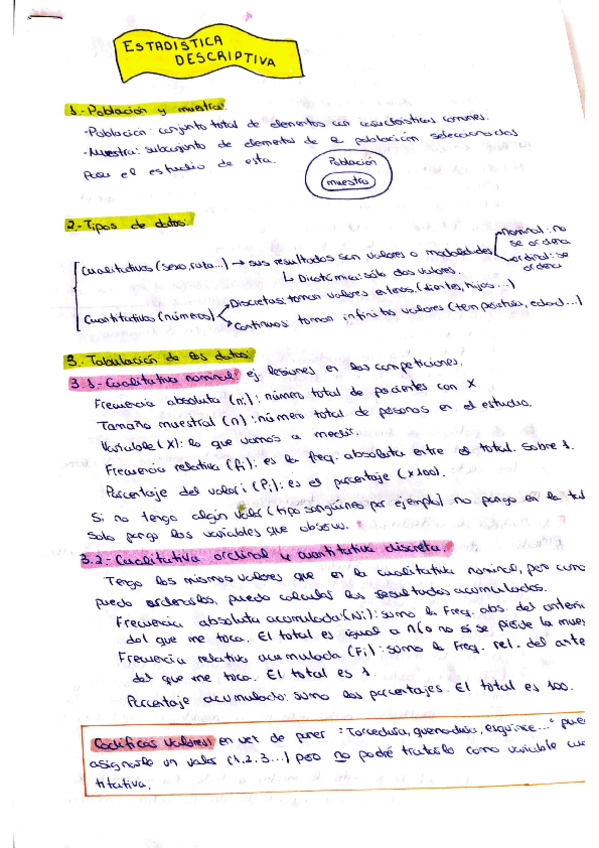 ESTADISTICA
DESCRIPTIVA
1.- Población y muestra.
-Población: conjunto total de elementos con características comunes.
-Muestra: subconjunto de elementos de la población seleccionados
para el estudio de esta.
Población
muestra
2.- Tipos de datos.
Cualitativos (sexo, ruta...) → sus resultados son valores o modalidades
nominal: no
se ordena
ordinal: se
ordena
↳ Dicotómica: sólo dos valores.
Cuantitativos (números)
Discretas: toman valores enteros. (dientes, hijos...)
Continuos: toman infinitos valores (temperatura, edad...)
3.- Tabulación de los datos.
3.1- Cualitativa nominal: ej. lesiones en las competiciones.
Frecuencia absoluta (ni): número total de pacientes con X
Tamaño muestral (n): número total de personas en el estudio.
Variable (X): lo que vamos a medir.
Frecuencia relativa (fi): es la freq. absoluta entre el total. Sobre 1.
Porcentaje del valor i (Pi): es el porcentaje (x100).
Si no tengo algún valor (tipo sanguíneo por ejemplo) no pongo en la
Solo pongo las variables que observo.
3.2- Cualitativa ordinal y cuantitativa discreta.
Tengo los mismos valores que en la cualitativa nominal, pero como
puedo ordenarlos, puedo calcular los resultados acumulados.
Frecuencia absoluta acumulada (Ni): sumo la Freq. abs. del anterio
al del que me toca. El total es igual a n (o no si se pierde la mues
Frecuencia relativa acumulada (Fi): sumo la Freq. rel. del ante
del que me toca. El total es 1.
Porcentaje acumulado: sumo los porcentajes. El total es 100.
Codificas valores: en vez de poner "Torcedura, quemadura, esguince..." pue
asignarlo un valor (1,2,3...) pero no podré tratarlo como variable cua
titativa.